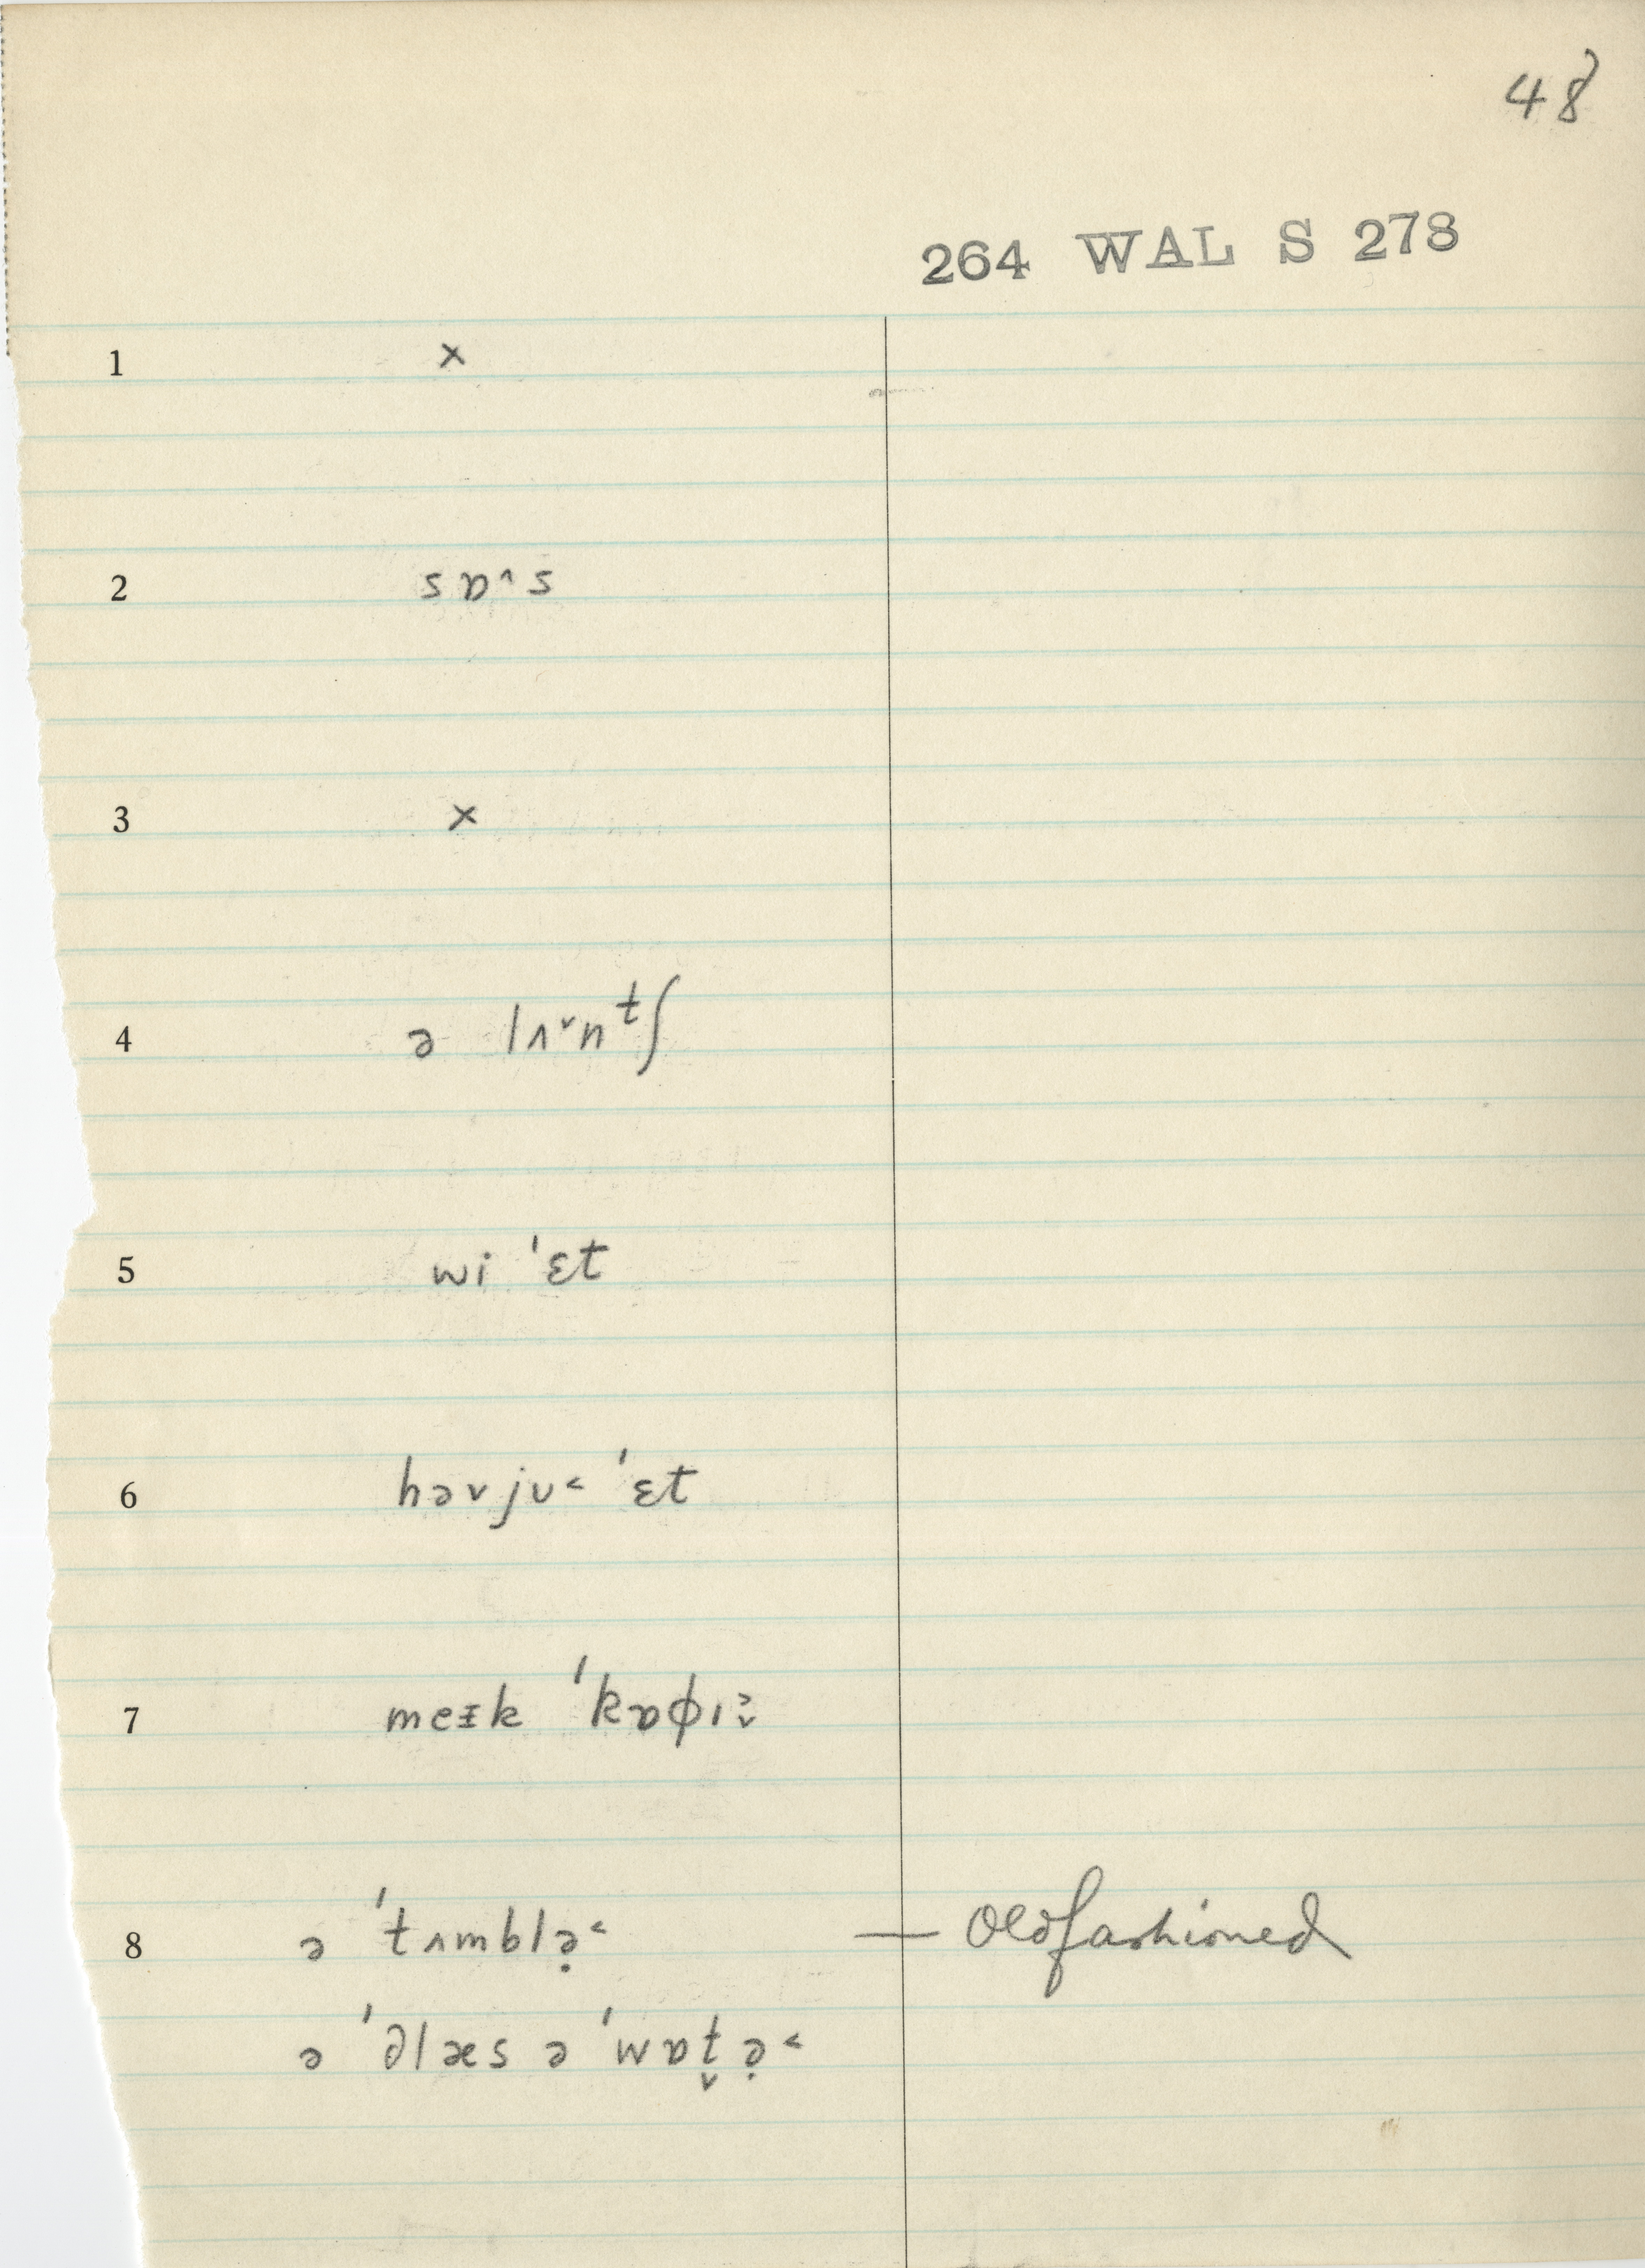 48
264 WAL S 278
1 ×
2 sɒ˄s
3 ×
4 ə lʌ˅nᵗʃ
5 wi ˈɛt
6 həvjʊ˂ ˈɛt
7 meɪ̵k ˈkɒɸɪ˒̬
8 ə ˈtʌmblə̣˂ — Oldfashioned
ə ˈ∂læs ə ˈwɒt̬ə̣˂